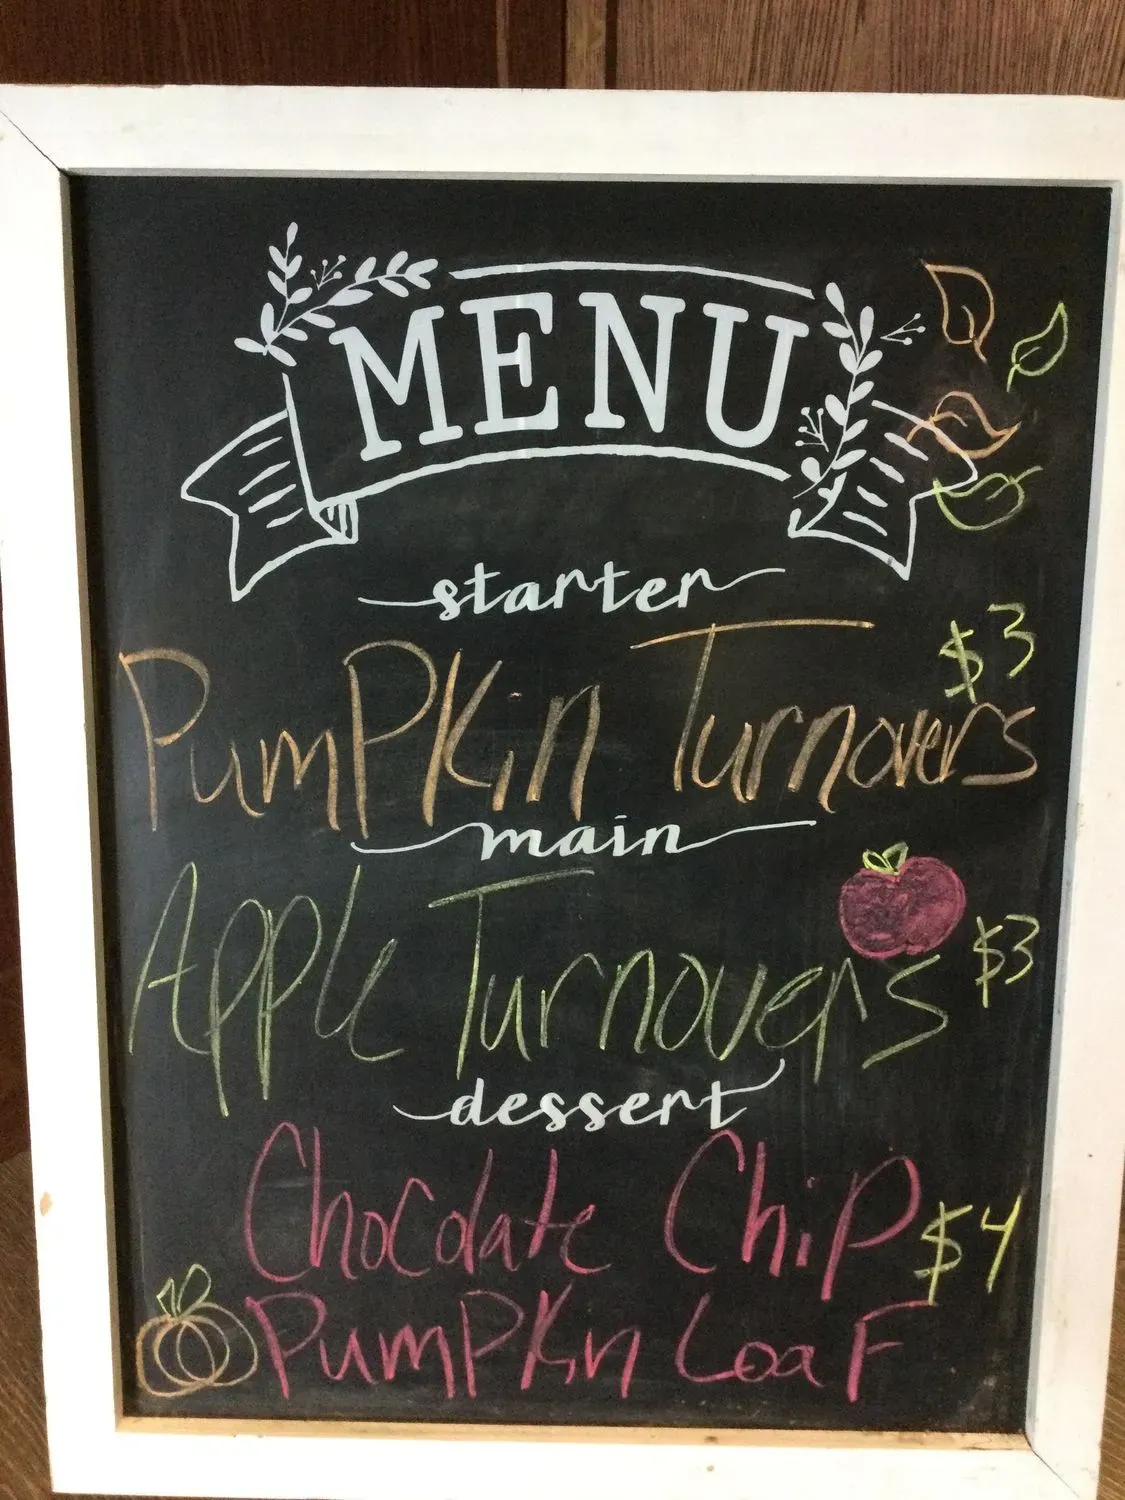 MENU
starter
$3
PumPKin Turnovers
main
Apple Turnovers $3
dessert
Chocolate ChiP $4
PumPKin LoaF